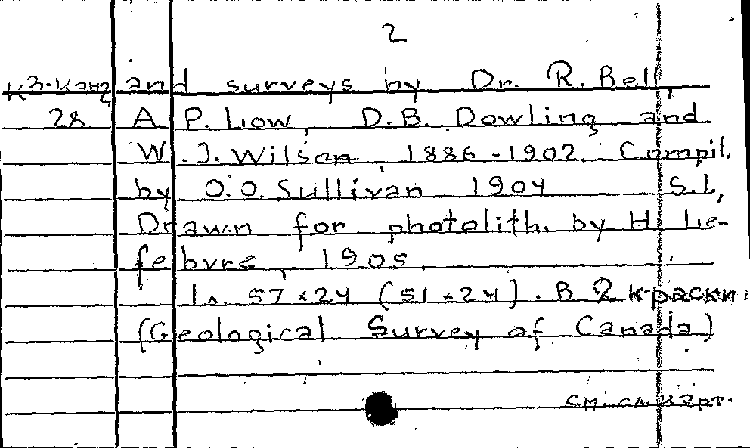 2
К3-Кан2 and surveys by Dr. R. Bell,
28 A. P. Low, D.B. Dowling and
W. J. Wilson, 1886-1902. Compil.
by O.O. Sullivan 1904 S.l,
Drawn for photolith. by H. Le-
febvre, 1905.
1 л. 57×24 (51×24). В 2 краски.
(Geological Survey of Canada)
см. сл.